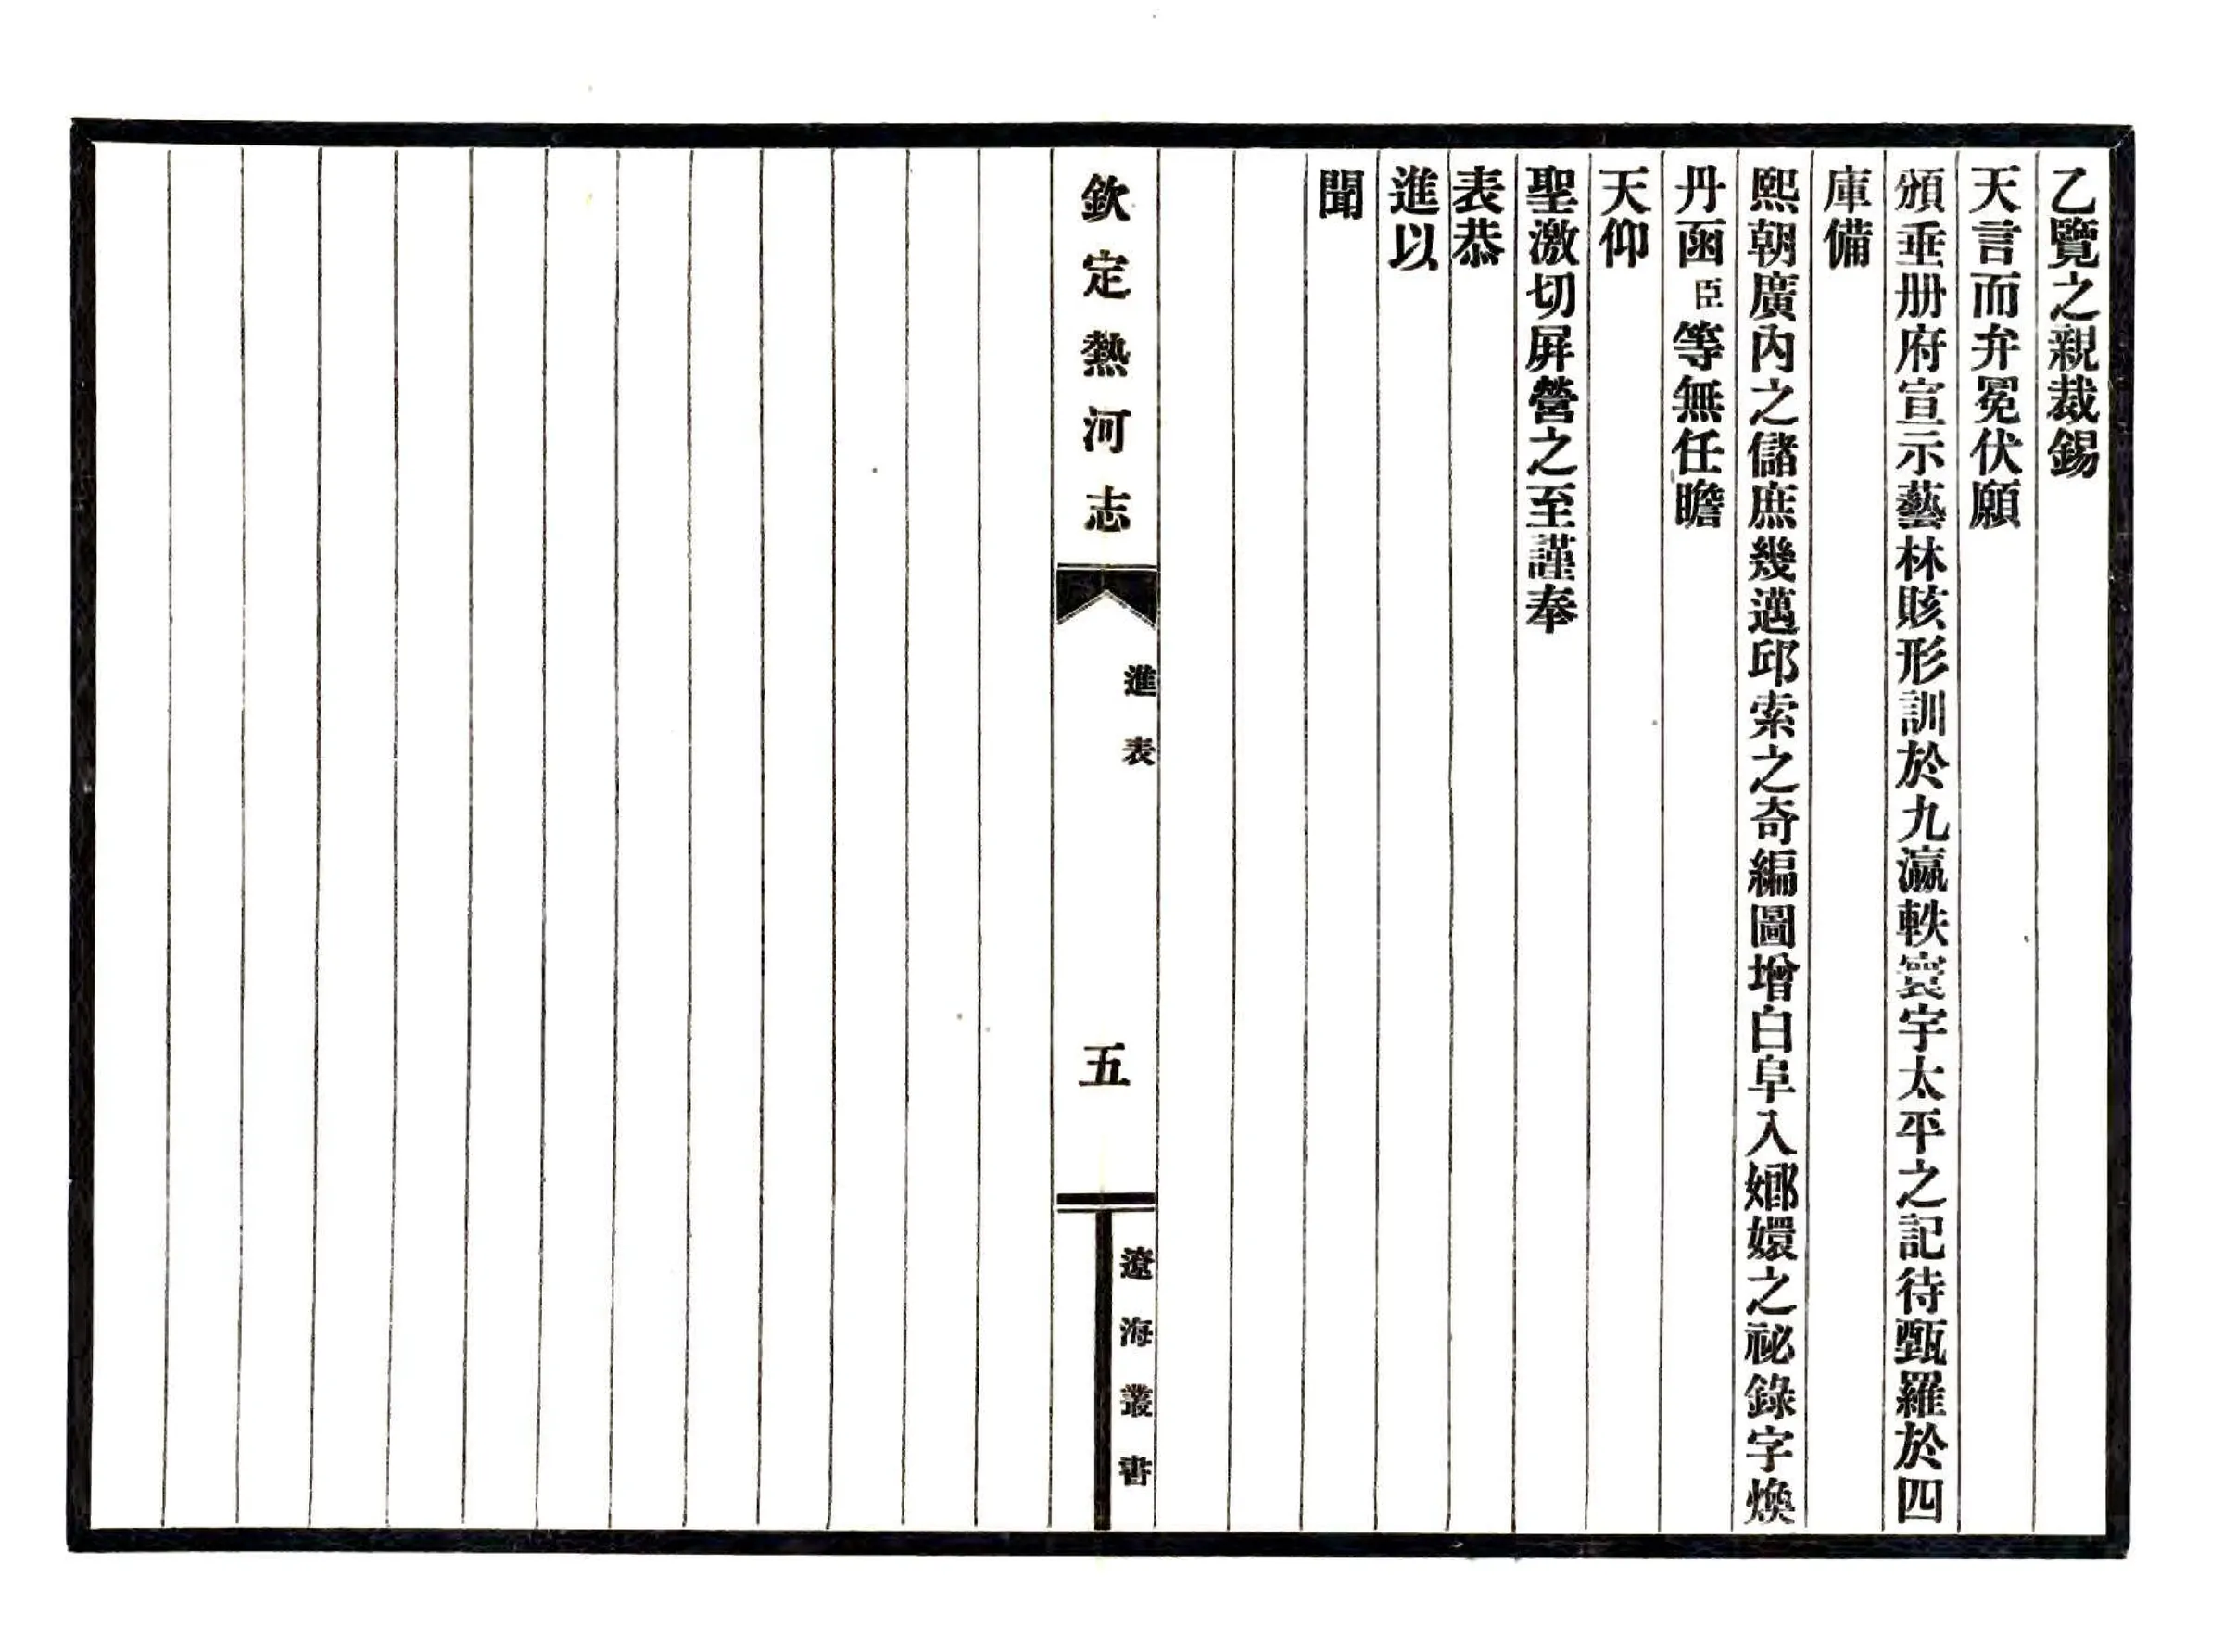 乙覽之親裁錫
天言而弁冕伏願
頒垂册府宣示藝林賅形訓於九瀛軼寰宇太平之記待甄羅於四
庫備
熙朝廣內之儲庶幾邁邱索之奇編圖增白阜入嫏嬛之祕錄字煥
丹函臣等無任瞻
天仰
聖激切屏營之至謹奉
表恭
進以
聞
欽定熱河志
進表
五
遼海叢書